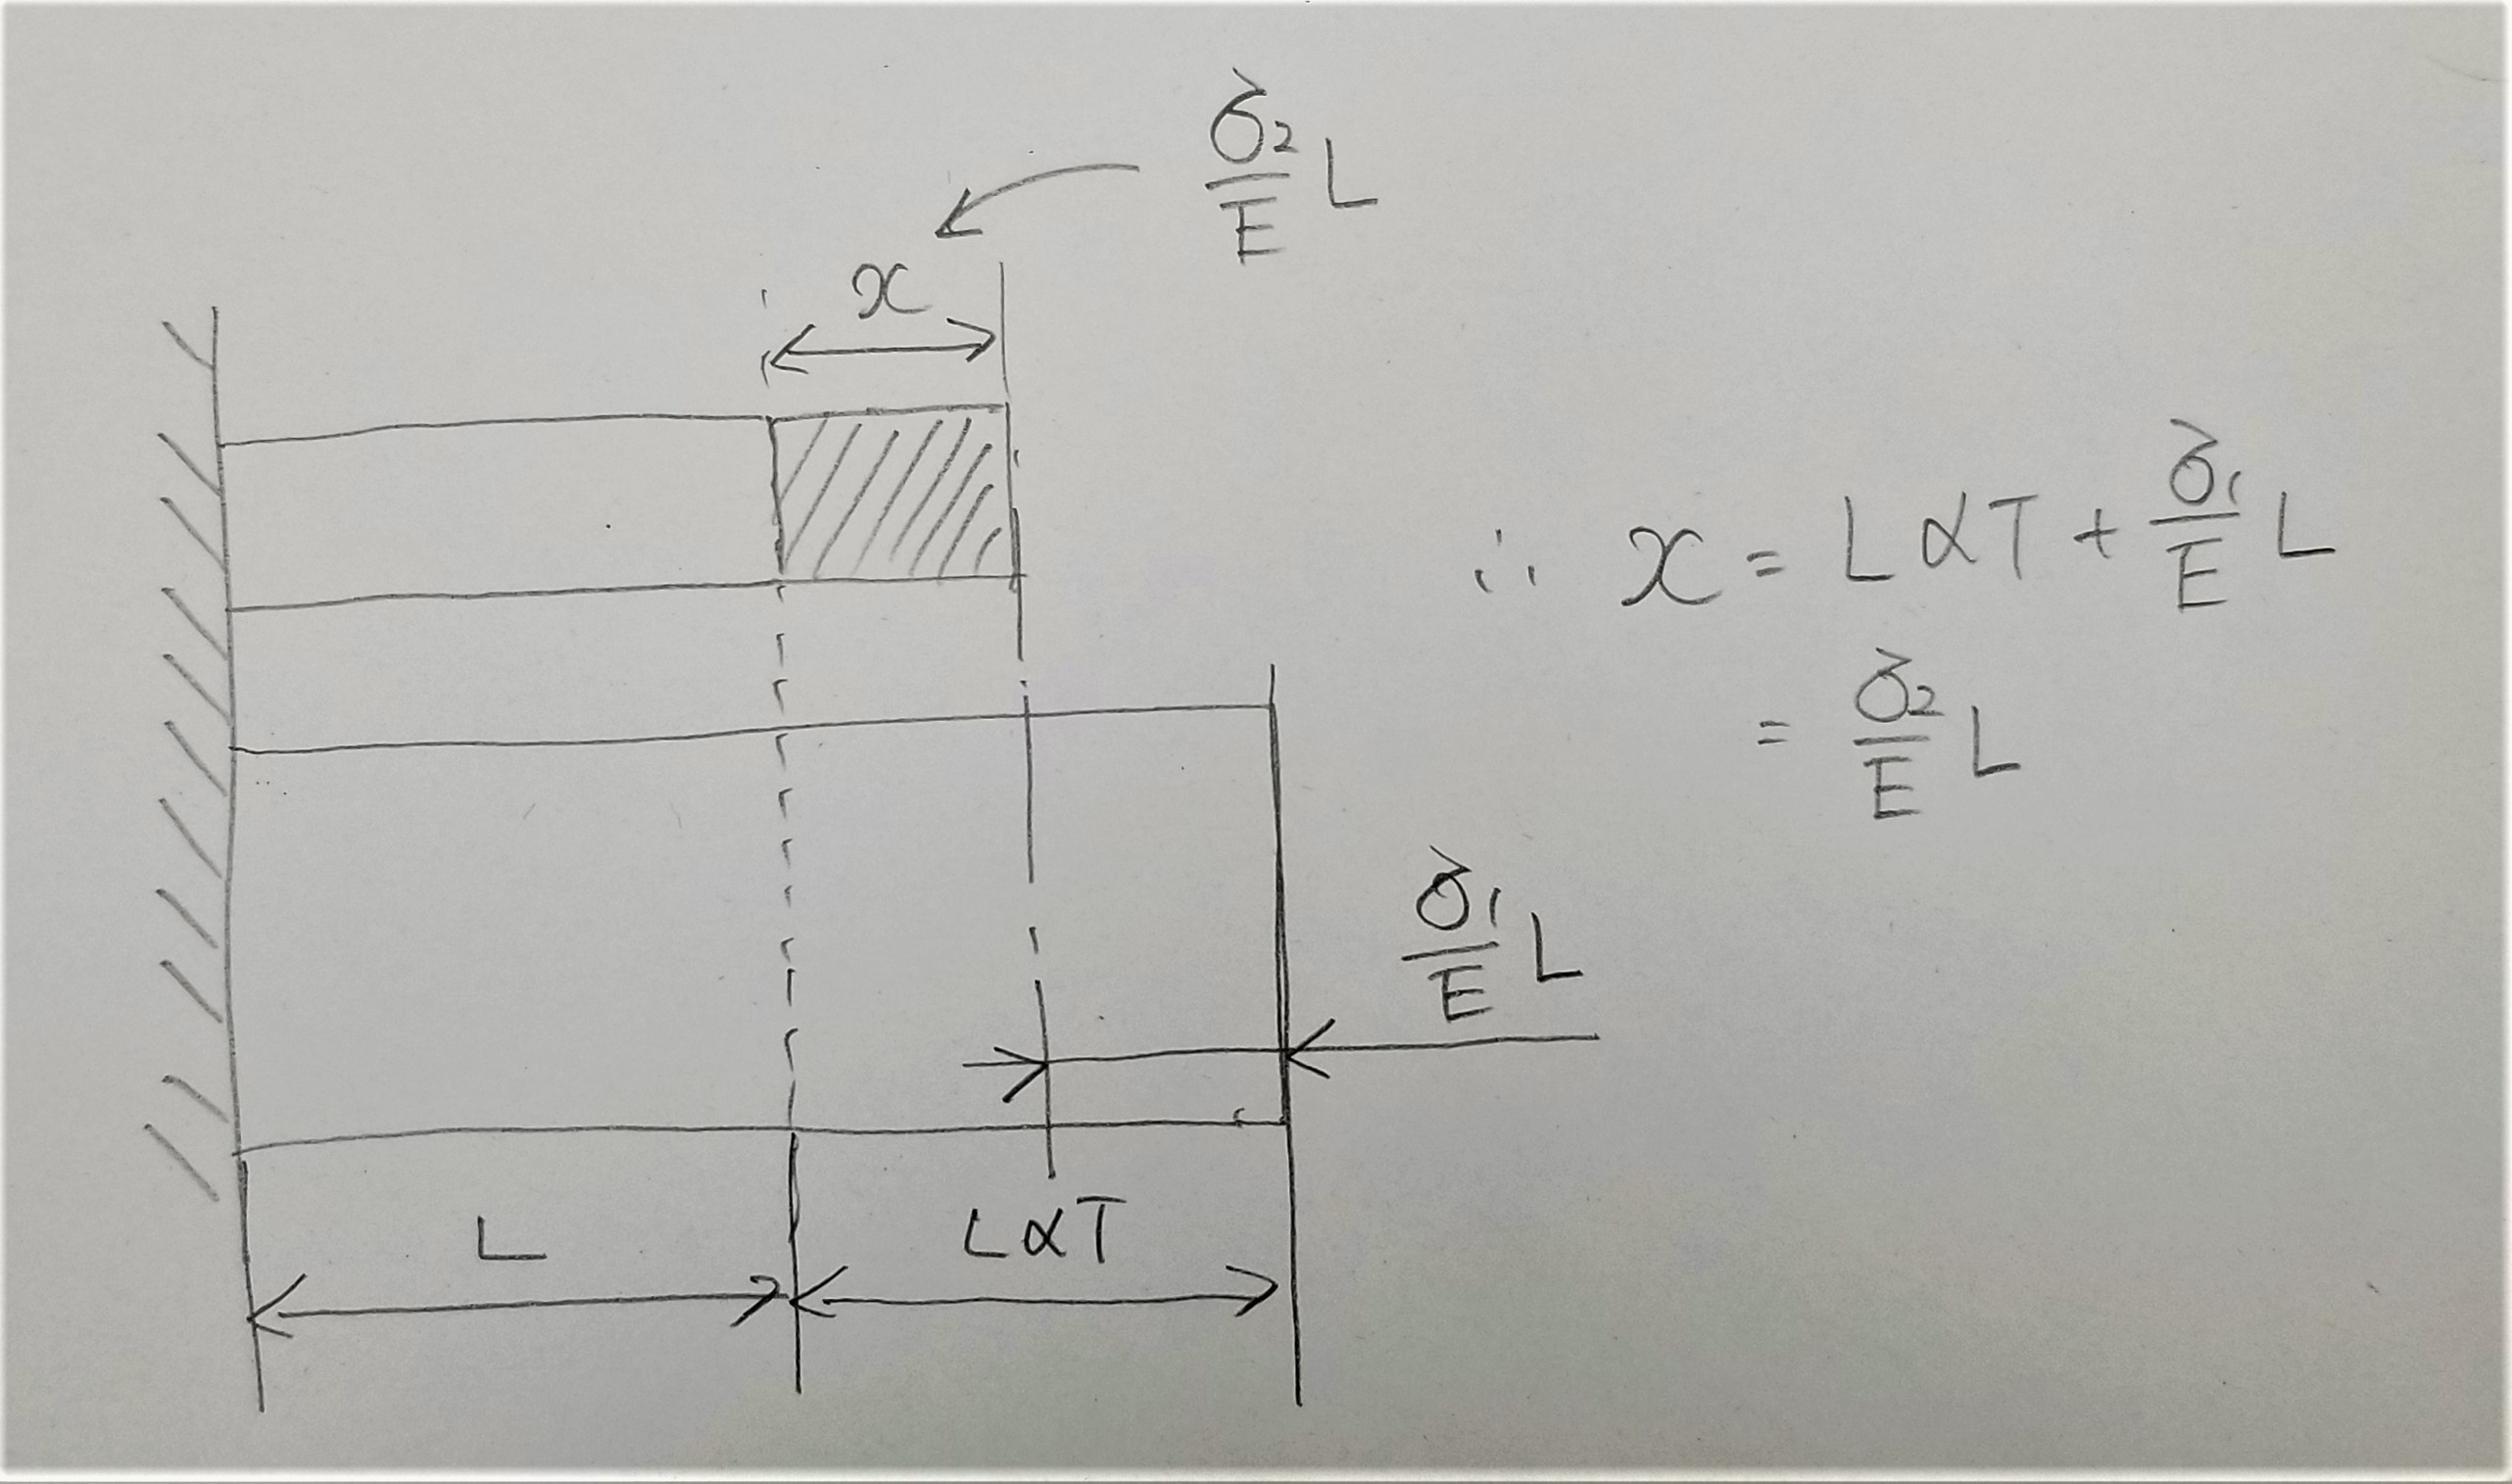 σ₂/E L
x
∴ x = LαT + σ₁/E L
= σ₂/E L
σ₁/E L
L
LαT